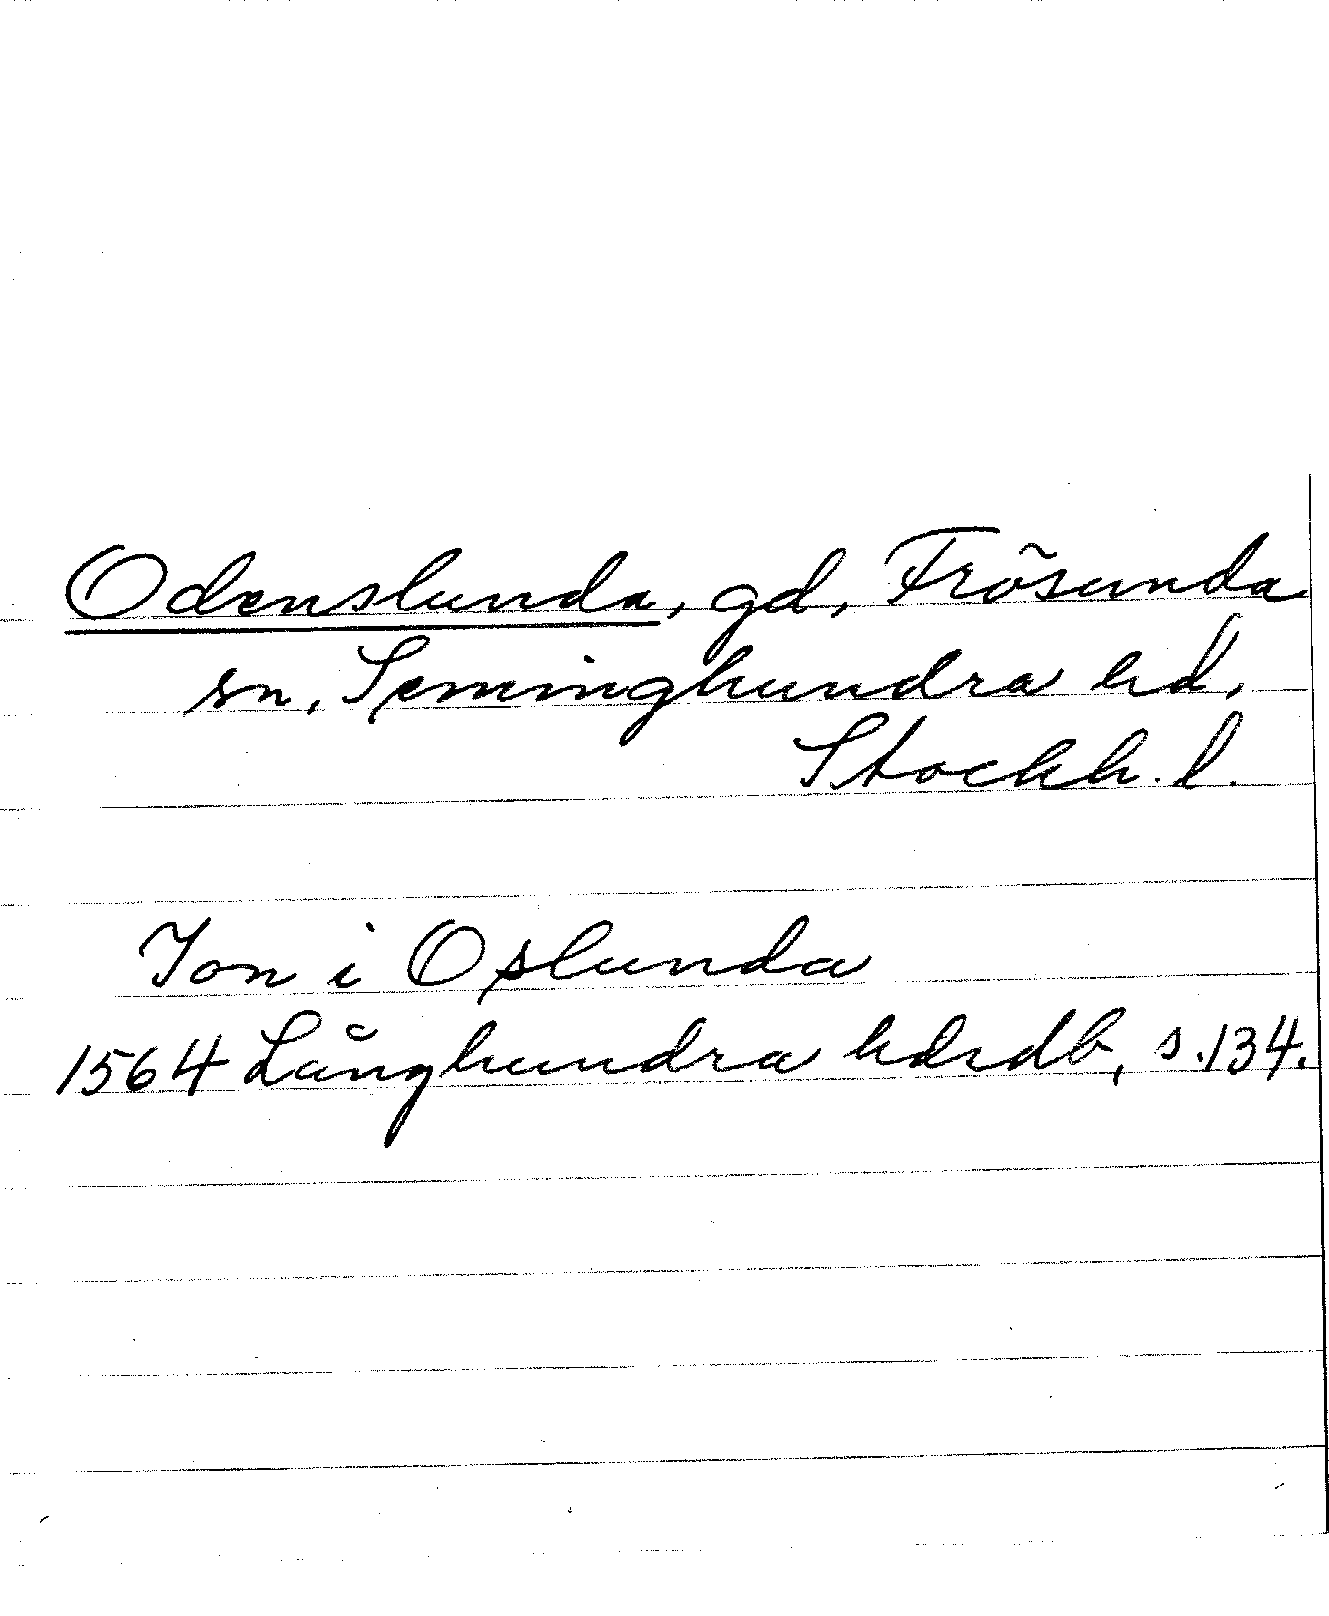 Odenslunda, gd, Frösunda
sn, Seminghundra hd,
Stockh. l.
Ion i Oslunda
1564 Långhundra hdrdb, s. 134.